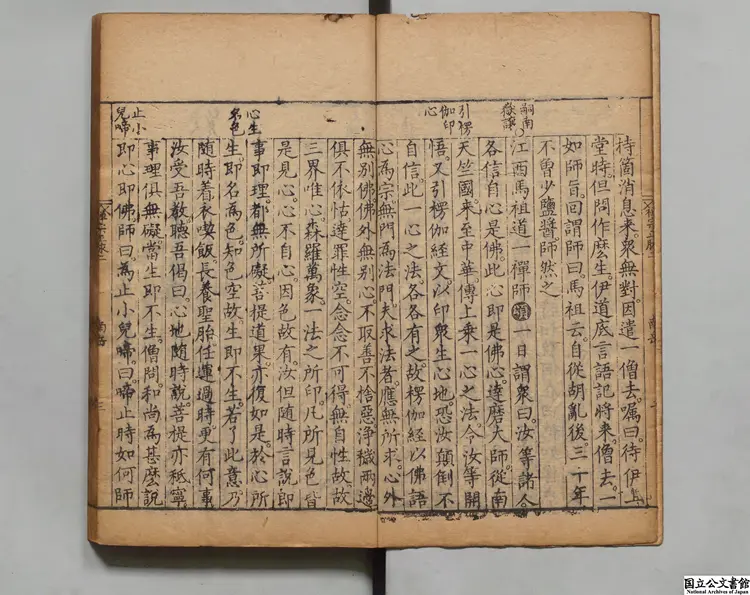 嗣南
嶽讓
持箇消息来衆無對因遣一僧去囑曰待伊上
堂時但問作麽生伊道底言語記將来僧去一
如師旨回謂師曰馬祖云自從胡亂後三十年
不曾少鹽醬師然之
江西馬祖道一禪師一日謂衆曰汝等諸人
引楞
伽印
心
各信自心是佛此心即是佛心達磨大師從南
天竺國来至中華傳上乗一心之法令汝等開
悟又引楞伽経文以印衆生心地恐汝顛倒不
自信此一心之法各各有之故楞伽經以佛語
心為宗無門為法門夫求法者應無所求心外
無別佛佛外無別心不取善不捨惡淨穢兩邊
俱不依怙達罪性空念念不可得無自性故故
三界唯心森羅萬象一法之所印凡所見色皆
是見心心不自心因色故有汝但隨時言說即
心生
名色
事即理都無所礙菩提道果亦復如是於心所
生即名為色知色空故生即不生若了此意乃
隨時着衣喫飯長養聖胎任運過時更有何事
汝受吾教聽吾偈曰心地隨時說菩提亦秖寧
止小
兒啼
事理俱無礙當生即不生僧問和尚為甚麽說
即心即佛師曰為止小兒啼曰啼止時如何師
国立公文書館
National Archives of Japan